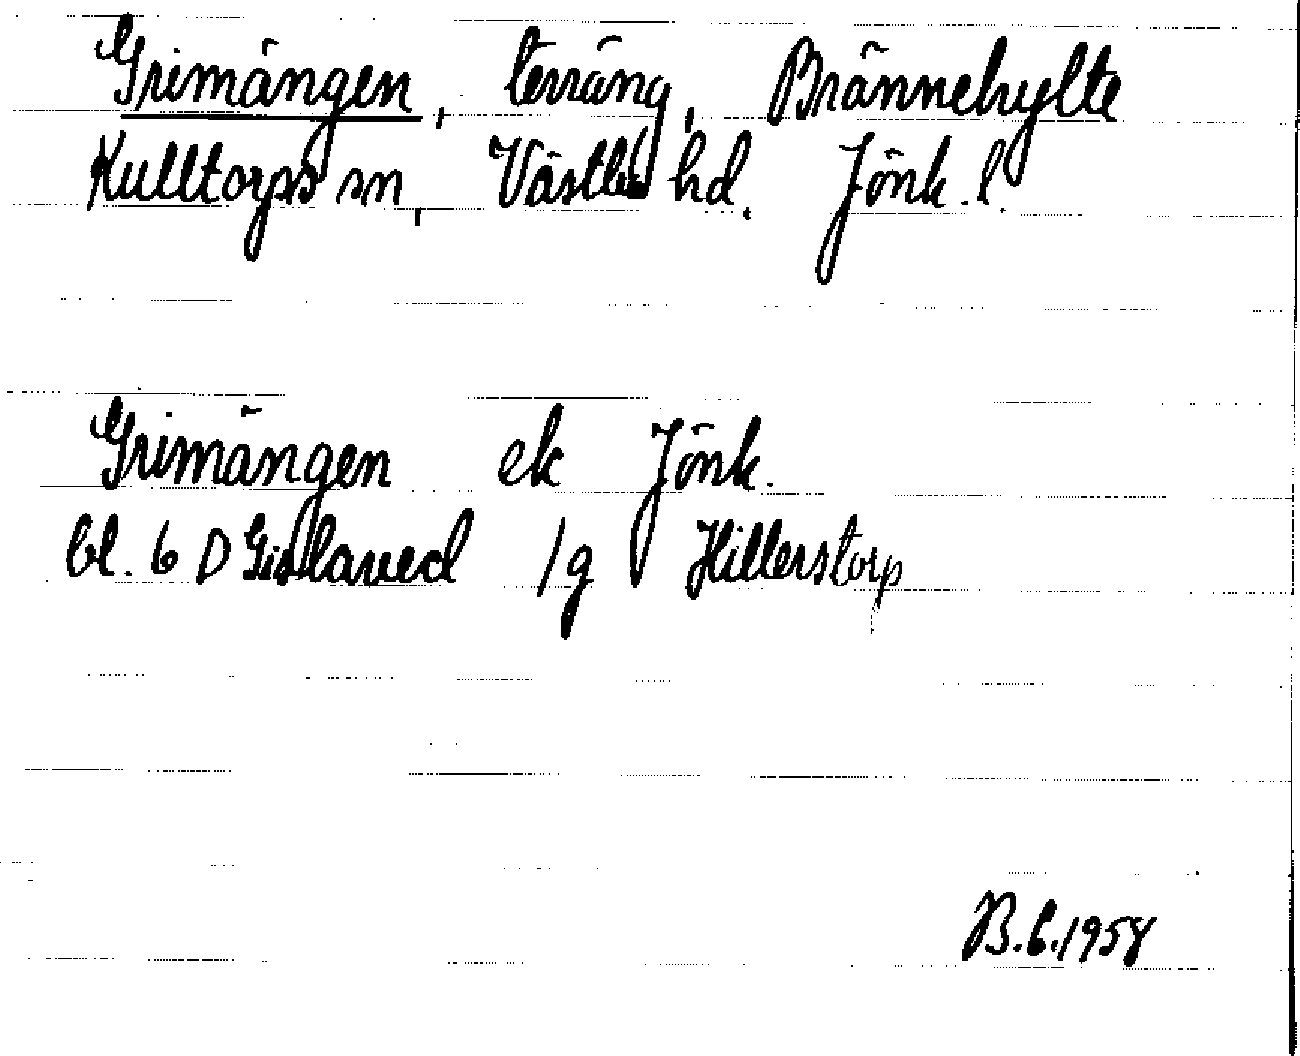 Grimängen, terräng, Brännehylte
Kulltorps sn, Västbo hd. Jönk. l.
Grimängen ek Jönk.
bl. 6 D Gislaved 1g Hillerstorp
B.G. 1958